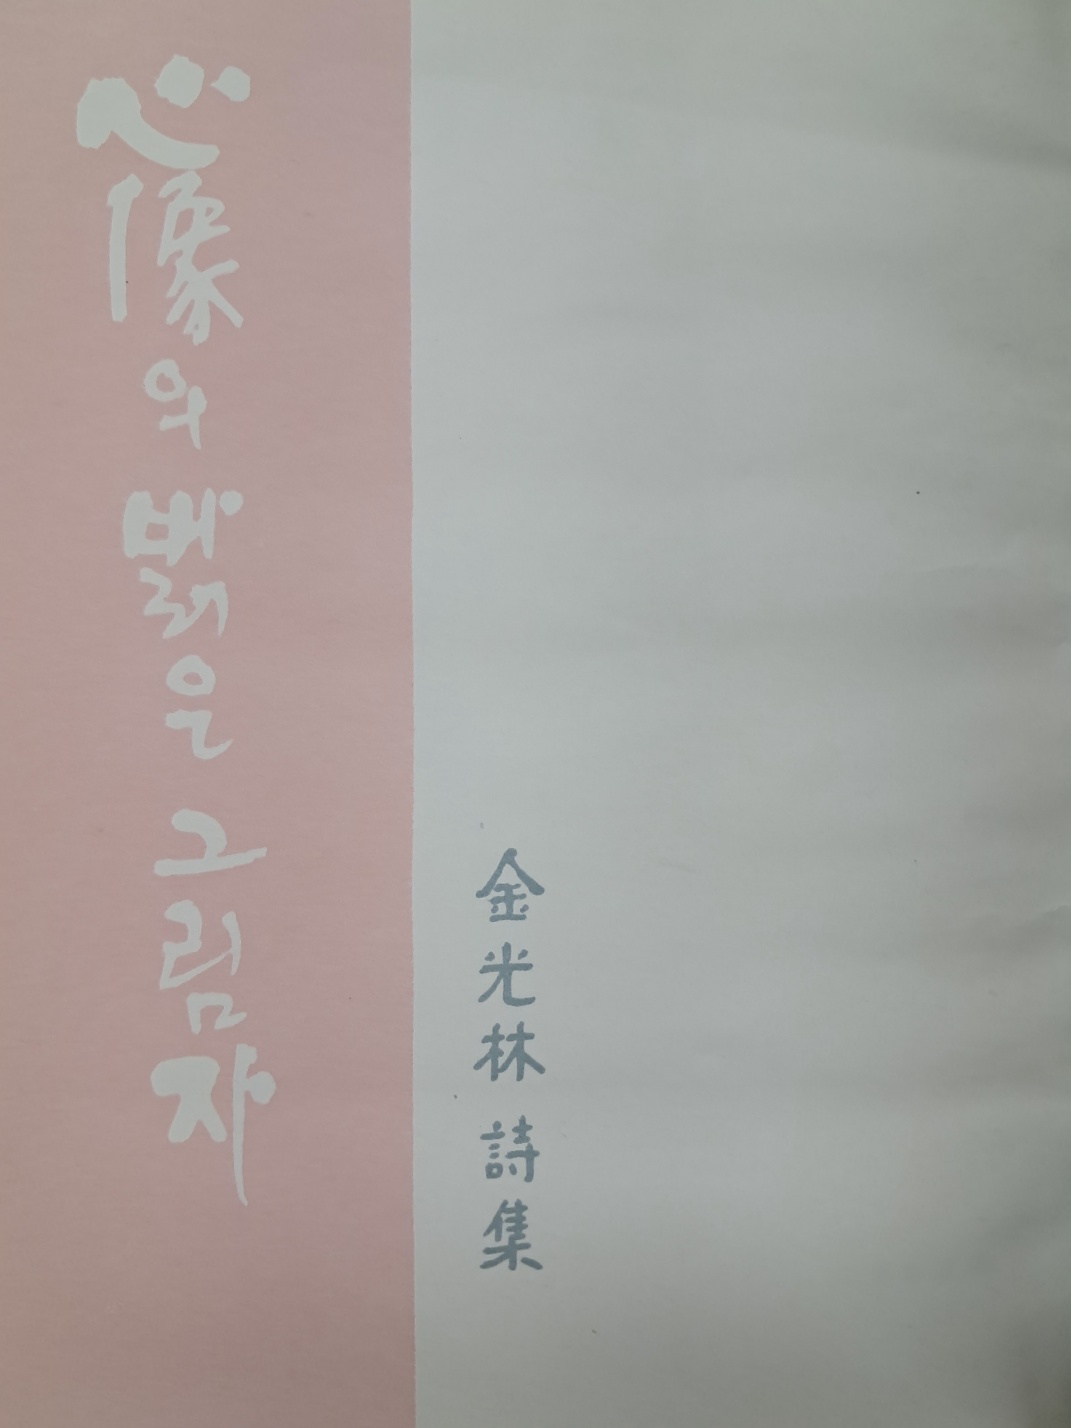 心像의 밝은 그림자
金光林 詩集